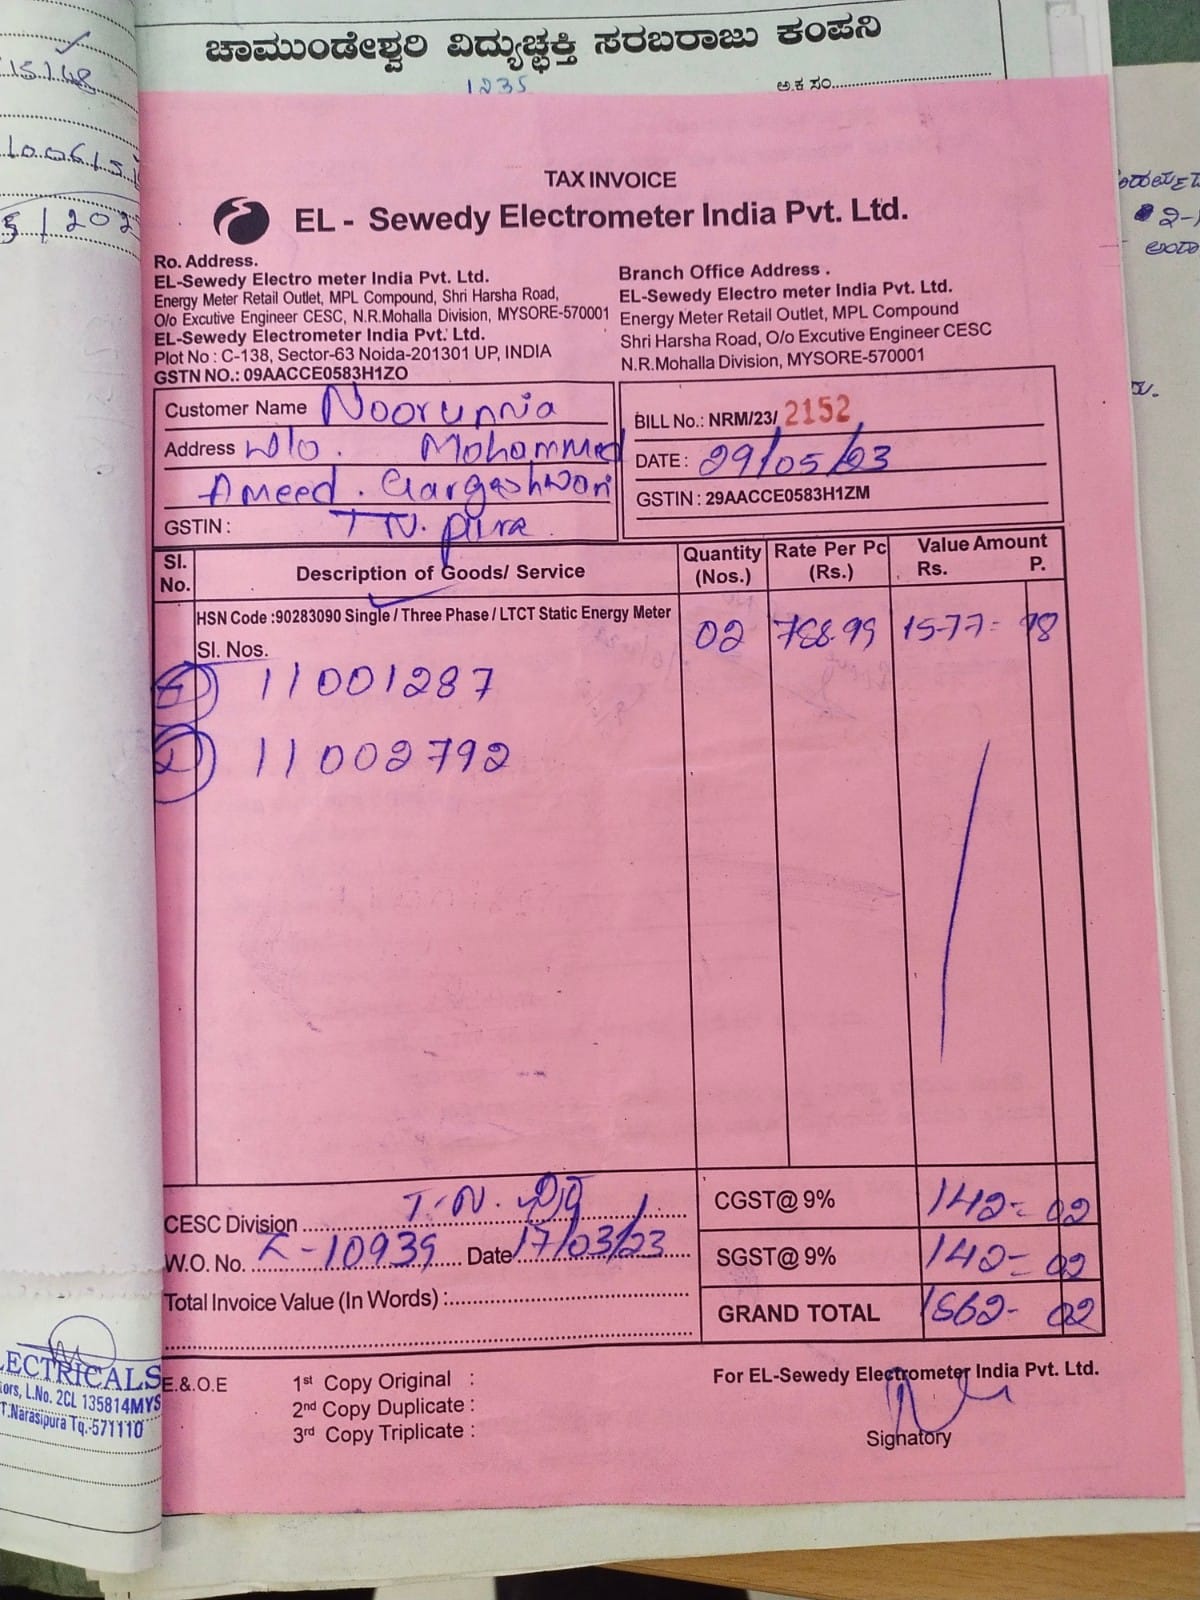 ಚಾಮುಂಡೇಶ್ವರಿ ವಿದ್ಯುಚ್ಛಕ್ತಿ ಸರಬರಾಜು ಕಂಪನಿ
1235
ಅ.ಕ ಸಂ
TAX INVOICE
EL - Sewedy Electrometer India Pvt. Ltd.
Ro. Address.
EL-Sewedy Electro meter India Pvt. Ltd.
Energy Meter Retail Outlet, MPL Compound, Shri Harsha Road,
O/o Excutive Engineer CESC, N.R.Mohalla Division, MYSORE-570001
EL-Sewedy Electrometer India Pvt. Ltd.
Plot No : C-138, Sector-63 Noida-201301 UP, INDIA
GSTN NO.: 09AACCE0583H1ZO
Branch Office Address .
EL-Sewedy Electro meter India Pvt. Ltd.
Energy Meter Retail Outlet, MPL Compound
Shri Harsha Road, O/o Excutive Engineer CESC
N.R.Mohalla Division, MYSORE-570001
Customer Name Noorunnia
Address W/o. Mohammed
Ameed. Gargeshwori
GSTIN : T N. pura
BILL No.: NRM/23/ 2152
DATE : 29/05/23
GSTIN : 29AACCE0583H1ZM
Sl. No. Description of Goods/ Service Quantity (Nos.) Rate Per Pc (Rs.) Value Amount Rs. P.
HSN Code :90283090 Single / Three Phase / LTCT Static Energy Meter 02 788.99 1577= 98
Sl. Nos.
11001287
11002792
CESC Division T.N.
W.O. No. 10939 Date 17/03/23
Total Invoice Value (In Words) :
CGST@ 9% 142= 02
SGST@ 9% 142= 02
GRAND TOTAL 1862- 02
E.&.O.E
1st Copy Original :
2nd Copy Duplicate :
3rd Copy Triplicate :
For EL-Sewedy Electrometer India Pvt. Ltd.
Signatory
LECTRICALS
tors, L.No. 2CL 135814MYS
T.Narasipura Tq.-571110